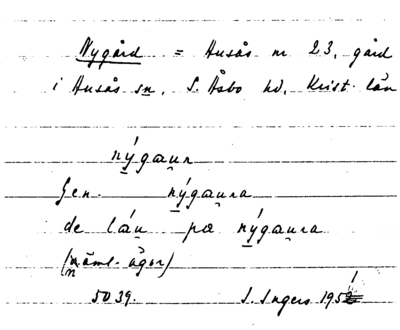 Nygård = Ausås nr 23, gård
i Ausås sn, S. Åsbo hd, Krist. län
nýgaụn
Gen. nýgaụna
de láụ pa nýgaụna
(näml. ågor)
5039. S. Ingers 1951